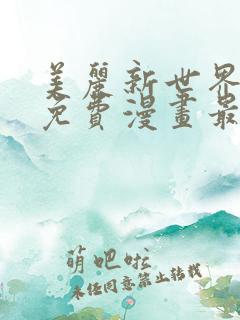 美麗新世界
免費漫畫最
萌吧啦
未经同意禁止转载